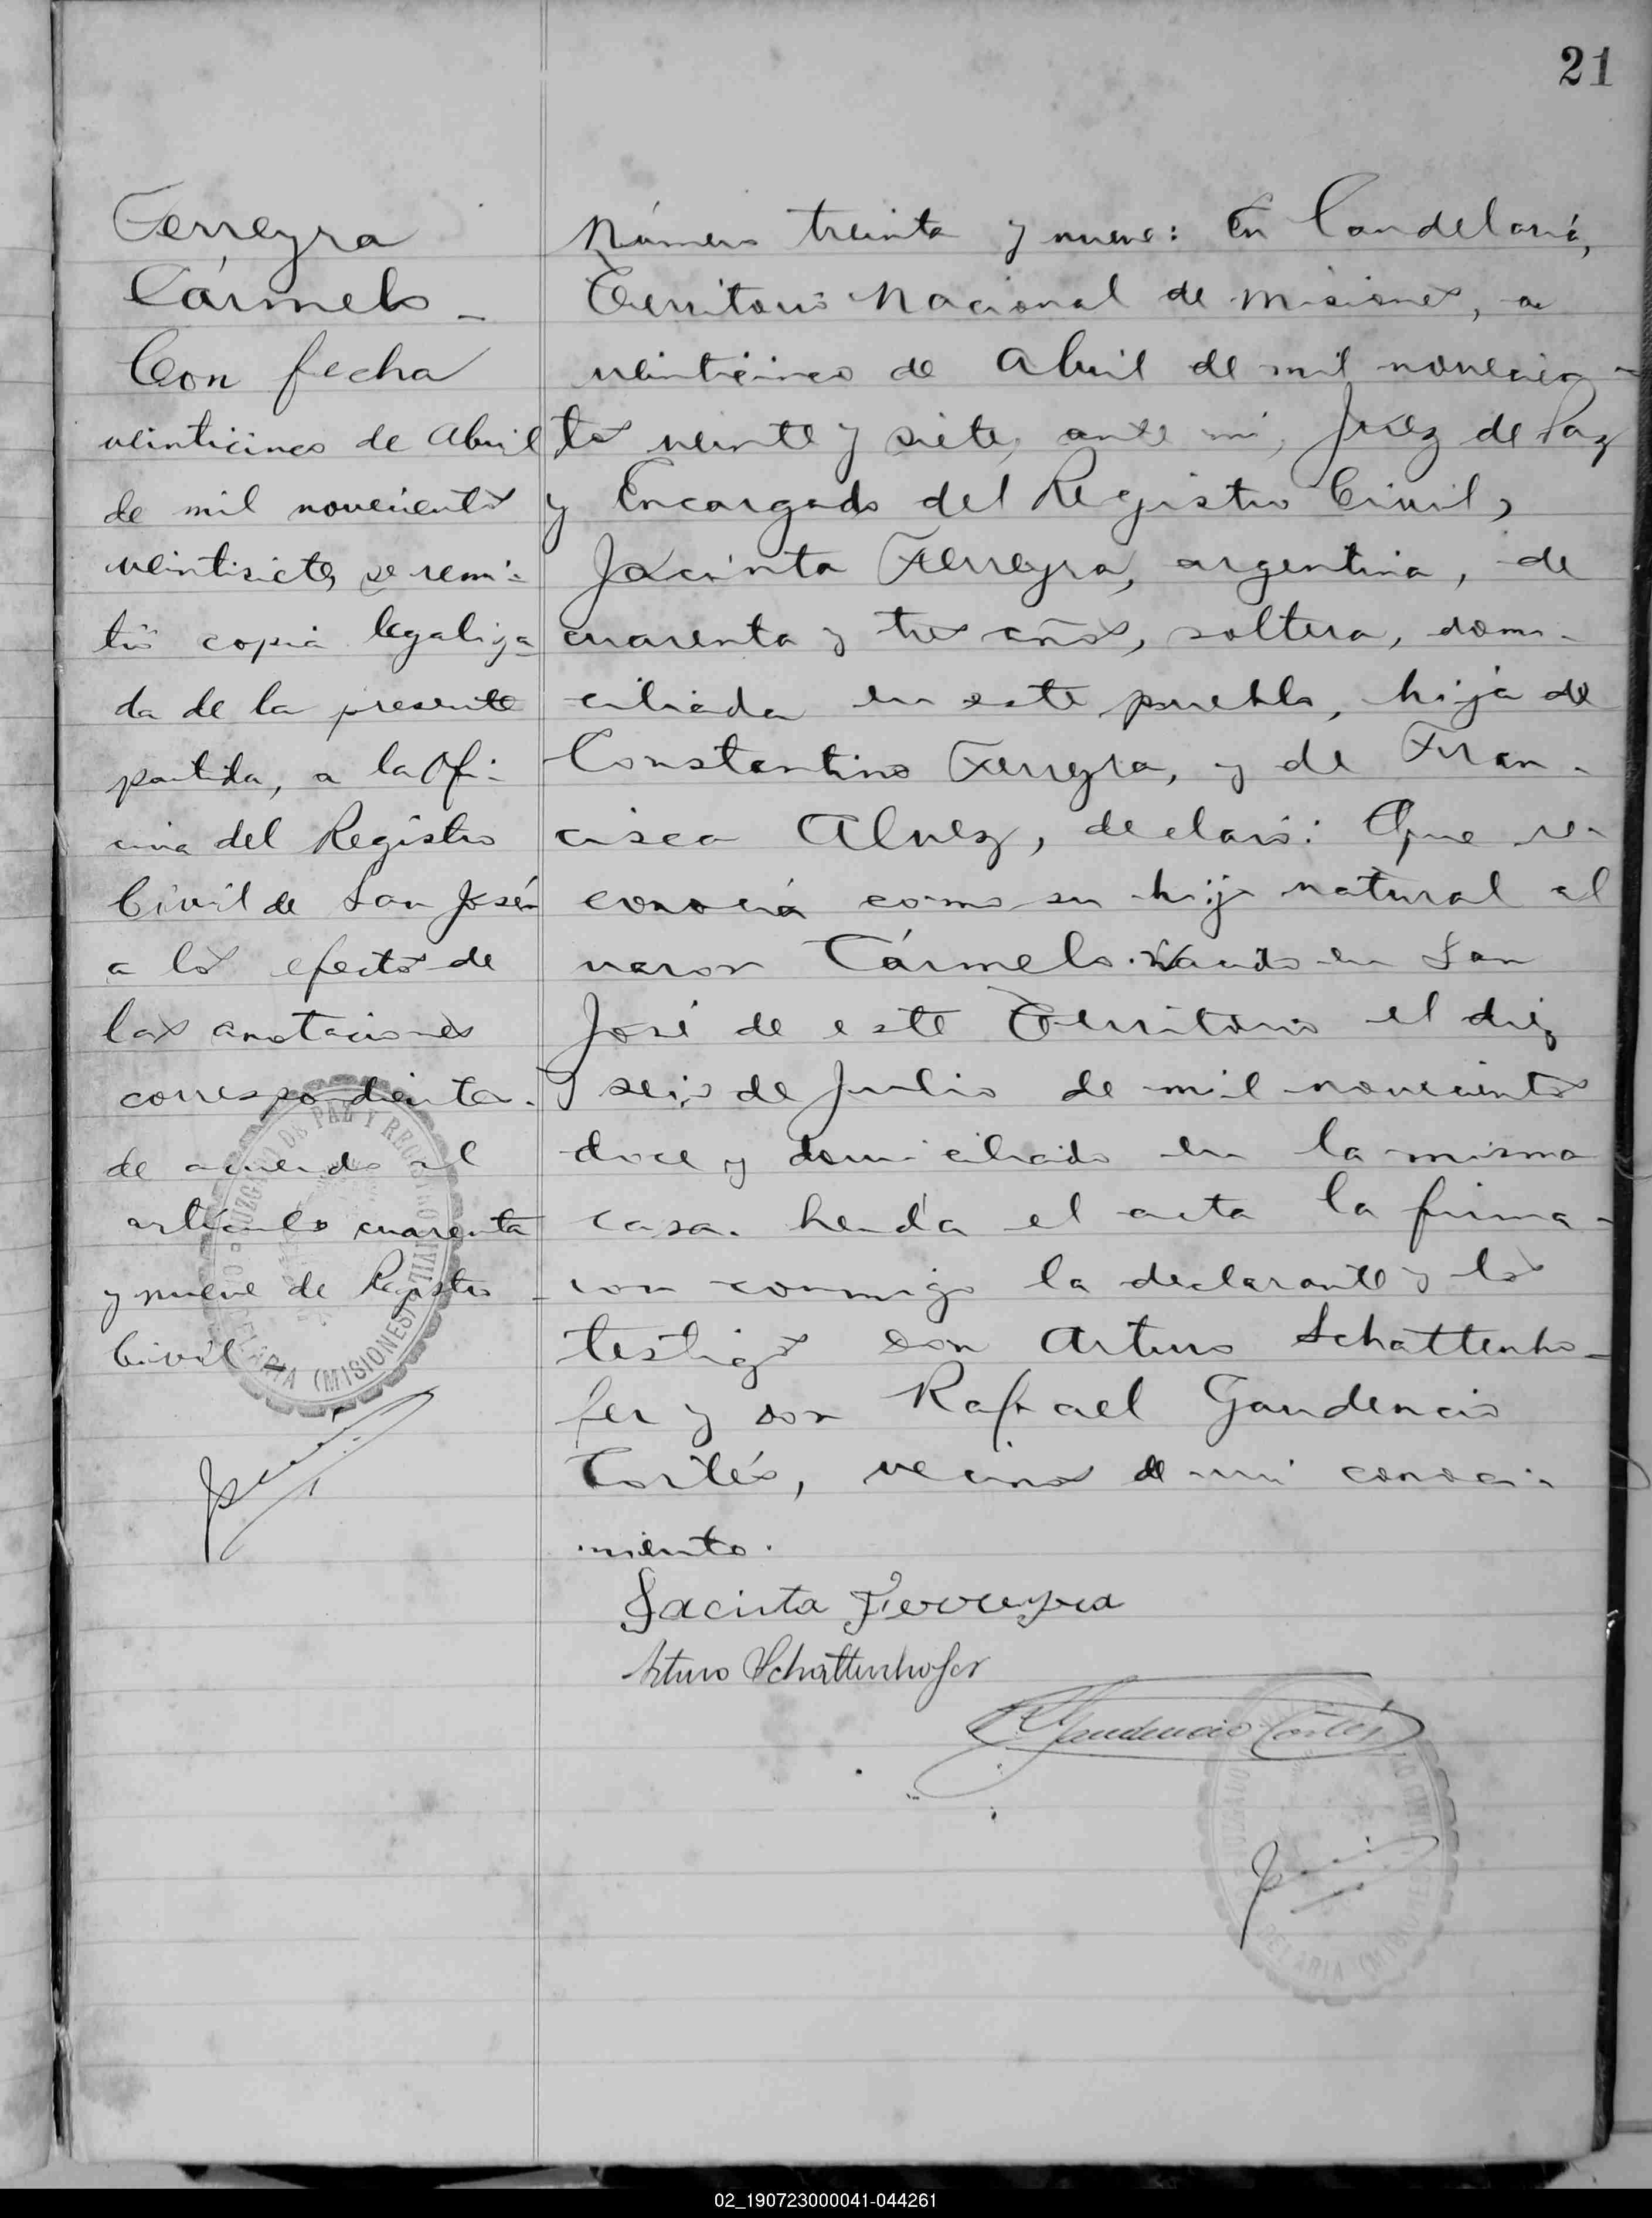 21
Ferreyra
Cármelo -
Con fecha
veinticinco de Abril
de mil novecientos
veintisiete, se remi-
tió copia legaliza-
da de la presente
partida, a la Ofi-
cina del Registro
Civil de San José
a los efectos de
las anotaciones
correspondientes
de acuerdo al
artículo cuarenta
y nueve de Registro
Civil -
Número treinta y nueve: En Candelaria,
Territorio Nacional de Misiones, a
veinticinco de Abril de mil novecien-
tos veinte y siete, ante mi, Juez de Paz
y Encargado del Registro Civil,
Jacinta Ferreyra, argentina, de
cuarenta y tres años, soltera, domi-
ciliada en este pueblo, hija de
Constantino Ferreyra, y de Fran-
cisca Alvez, declaró: Que re-
conocia como su hijo natural al
varon Cármelo. Nacido en San
José de este Territorio el diez
y seis de Julio de mil novecientos
doce y domiciliado en la misma
casa. Leída el acta la firma-
ron conmigo la declarante y los
testigos don Arturo Schattenho-
fer y don Rafael Gaudencio
Cortés, vecinos de mi conoci-
miento.
Jacinta Ferreyra
Arturo Schattenhofer
R Gaudencio Cortés
JUZGADO DE PAZ Y REGISTRO CIVIL
CANDELARIA (MISIONES)
02_190723000041-044261